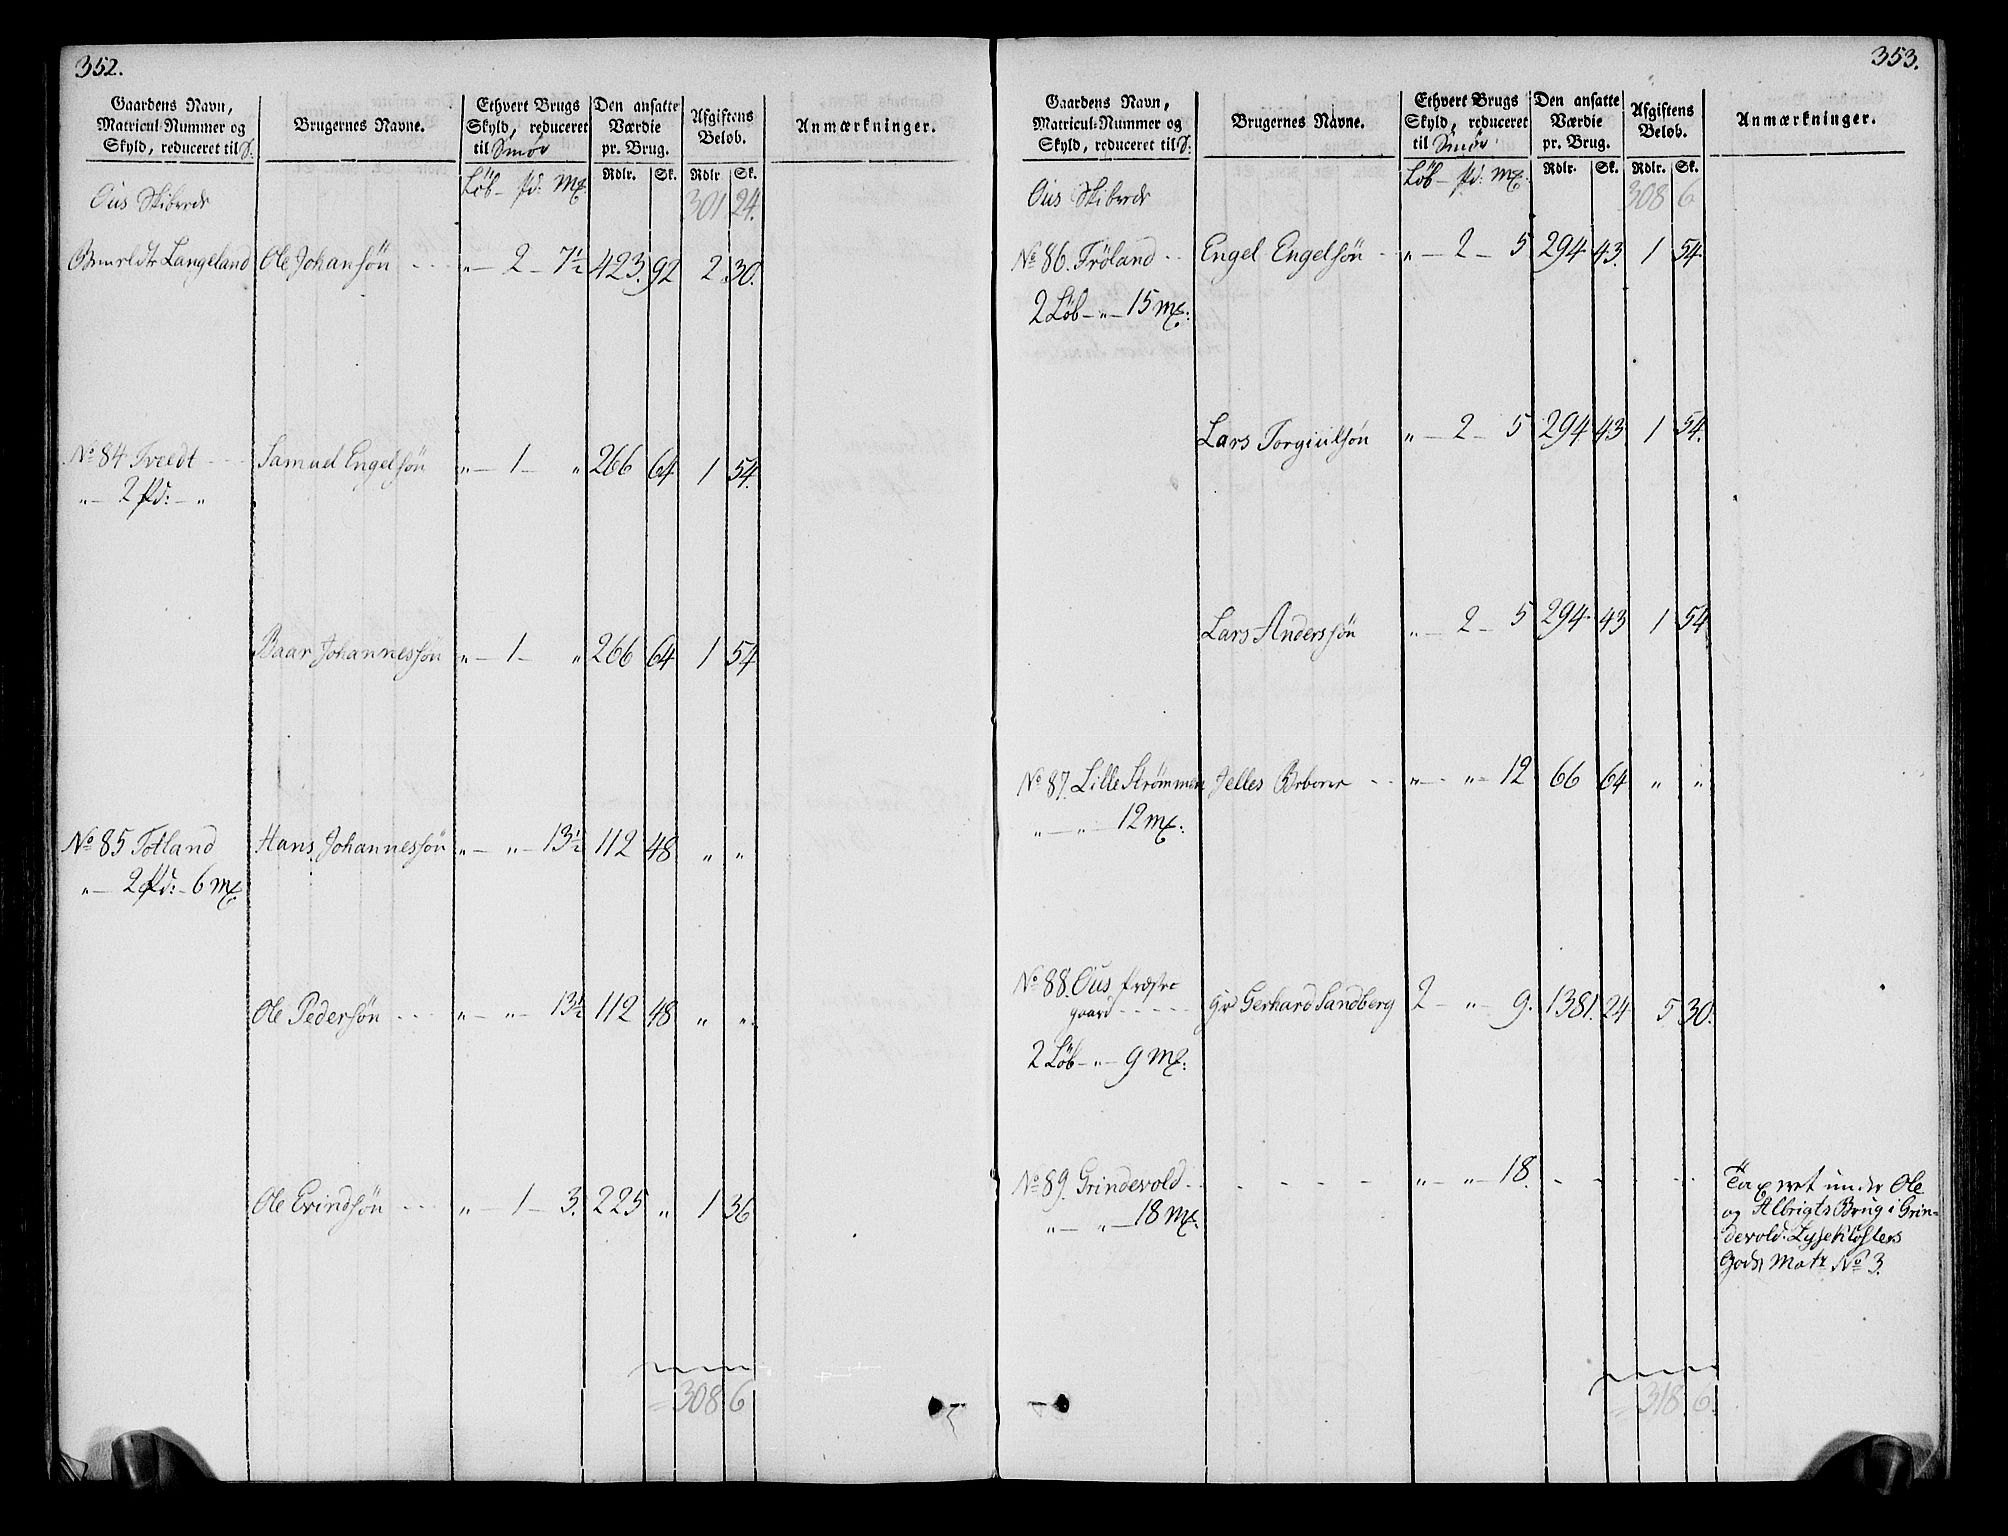 352.
Gaardens Navn, Matricul-Nummer og Skyld, reduceret til S: | Brugernes Navne. | Ethvert Brugs Skyld, reduceret til Smør | Den ansatte Værdie pr. Brug. | Afgiftens Beløb. | Anmærkninger.
Löb - pd: mk: | Rdlr. | Sk. | Rdlr | Sk.
Ous Skibrede | 301 | 24.
Langeland | Ole Johansön | „ - 2 - 7½ | 423. | 92 | 2. | 30.
No 84 Tveldt | Samuel Engelsön | „ - 1 - „ | 266 | 64 | 1 | 54.
„ - 2 pd: - „
Baar Johannessön | „ - 1 - „ | 266 | 64 | 1 | 54
No 85 Totland | Hans Johannessön | „ - „ - 13½ | 112 | 48 | „ | „
„ - 2 pd: - 6 mk
Ole Pedersön | „ - „ - 13½ | 112 | 48 | „ | „
Ole Evindsön | „ - 1 - 3. | 225 | „ | 1 | 36
308 | 6
353.
Gaardens Navn, Matricul-Nummer og Skyld, reduceret til S: | Brugernes Navne. | Ethvert Brugs Skyld, reduceret til Smör | Den ansatte Værdie pr. Brug. | Afgiftens Beløb. | Anmærkninger.
Löb - pd: mk: | Rdlr. | Sk. | Rdlr. | Sk.
Ous Skibrede | 308 | 6
No 86. Fröland | Engel Engelsön | „ - 2 - 5 | 294 | 43. | 1 | 54.
2 Löb - „ - 15 mk:
Lars Torgiulsön | „ - 2 - 5 | 294 | 43 | 1 | 54.
Lars Anderssön | „ - 2 - 5 | 294 | 43 | 1 | 54
No 87. Lille Strømmen | Jelles | „ - „ - 12 | 66 | 64 | „ | „
„ - „ - 12 mk:
No 88. Ous Præste
gaard | Hr Gerhard Sandberg | 2 - „ - 9. | 1381. | 24 | 5 | 30.
2 Löb - „ - 9 mk:
No 89. Grindevold | „ - „ - 18. | Taxeret under Ole
„ - „ - 18 mk: | og Albrigts Brug i Grin-
devold. Lyseklosters
Gods, Matr No 3.
318 | 6.